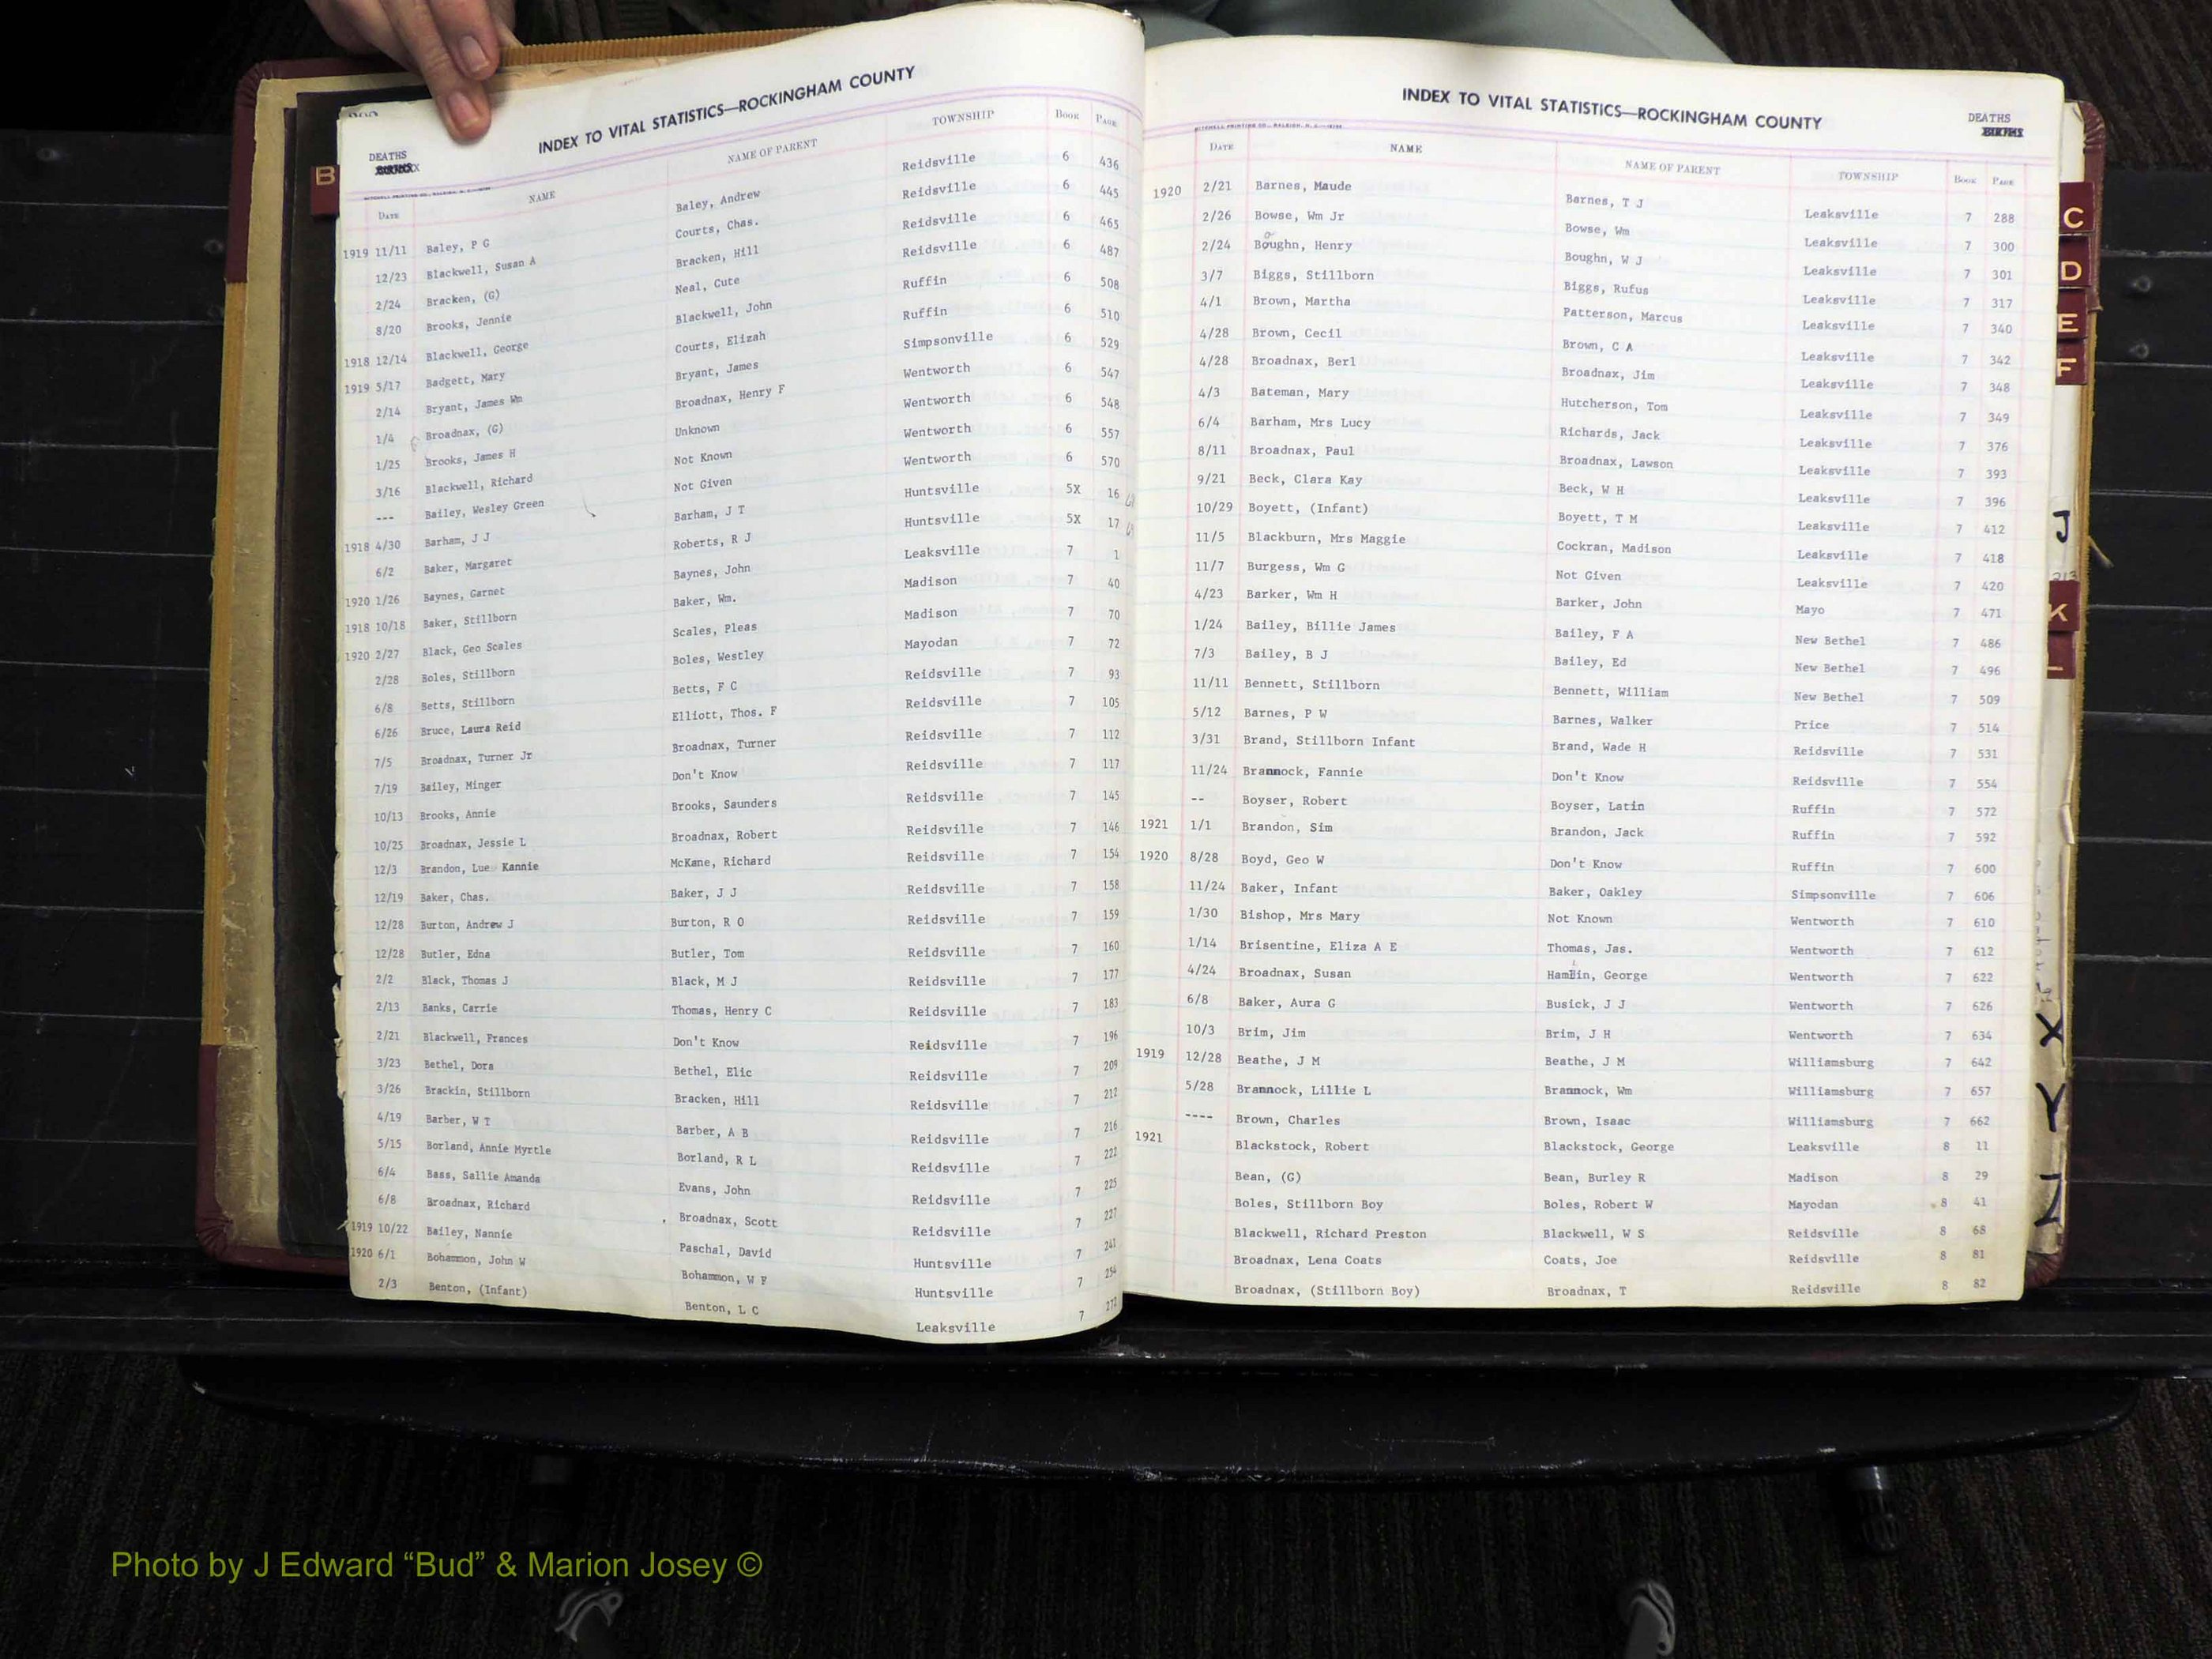 INDEX TO VITAL STATISTICS—ROCKINGHAM COUNTY
DEATHS
DATE NAME NAME OF PARENT TOWNSHIP BOOK PAGE
1919 11/11 Baley, P G Baley, Andrew Reidsville 6 436
12/23 Blackwell, Susan A Courts, Chas. Reidsville 6 445
2/24 Bracken, (G) Bracken, Hill Reidsville 6 465
8/20 Brooks, Jennie Neal, Cute Reidsville 6 487
1918 12/14 Blackwell, George Blackwell, John Ruffin 6 508
1919 5/17 Badgett, Mary Courts, Elizah Ruffin 6 510
2/14 Bryant, James Wm Bryant, James Simpsonville 6 529
1/4 Broadnax, (G) Broadnax, Henry F Wentworth 6 547
1/25 Brooks, James H Unknown Wentworth 6 548
3/16 Blackwell, Richard Not Known Wentworth 6 557
--- Bailey, Wesley Green Not Given Wentworth 6 570
1918 4/30 Barham, J J Barham, J T Huntsville 5X 16
6/2 Baker, Margaret Roberts, R J Huntsville 5X 17
1920 1/26 Baynes, Garnet Baynes, John Leaksville 7 1
1918 10/18 Baker, Stillborn Baker, Wm. Madison 7 40
1920 2/27 Black, Geo Scales Scales, Pleas Madison 7 70
2/28 Boles, Stillborn Boles, Westley Mayodan 7 72
6/8 Betts, Stillborn Betts, F C Reidsville 7 93
6/26 Bruce, Laura Reid Elliott, Thos. F Reidsville 7 105
7/5 Broadnax, Turner Jr Broadnax, Turner Reidsville 7 112
7/19 Bailey, Minger Don't Know Reidsville 7 117
10/13 Brooks, Annie Brooks, Saunders Reidsville 7 145
10/25 Broadnax, Jessie L Broadnax, Robert Reidsville 7 146
12/3 Brandon, Lue Kannie McKane, Richard Reidsville 7 154
12/19 Baker, Chas. Baker, J J Reidsville 7 158
12/28 Burton, Andrew J Burton, R O Reidsville 7 159
12/28 Butler, Edna Butler, Tom Reidsville 7 160
2/2 Black, Thomas J Black, M J Reidsville 7 177
2/13 Banks, Carrie Thomas, Henry C Reidsville 7 183
2/21 Blackwell, Frances Don't Know Reidsville 7 196
3/23 Bethel, Dora Bethel, Elic Reidsville 7 209
3/26 Brackin, Stillborn Bracken, Hill Reidsville 7 212
4/19 Barber, W T Barber, A B Reidsville 7 216
5/15 Borland, Annie Myrtle Borland, R L Reidsville 7 222
6/4 Bass, Sallie Amanda Evans, John Reidsville 7 225
6/8 Broadnax, Richard Broadnax, Scott Reidsville 7 227
1919 10/22 Bailey, Nannie Paschal, David Huntsville 7 241
1920 6/1 Bohammon, John W Bohammon, W F Huntsville 7 254
2/3 Benton, (Infant) Benton, L C Leaksville 7 272
B
INDEX TO VITAL STATISTICS—ROCKINGHAM COUNTY
DEATHS
DATE NAME NAME OF PARENT TOWNSHIP BOOK PAGE
1920 2/21 Barnes, Maude Barnes, T J Leaksville 7 288
2/26 Bowse, Wm Jr Bowse, Wm Leaksville 7 300
2/24 Boughn, Henry Boughn, W J Leaksville 7 301
3/7 Biggs, Stillborn Biggs, Rufus Leaksville 7 317
4/1 Brown, Martha Patterson, Marcus Leaksville 7 340
4/28 Brown, Cecil Brown, C A Leaksville 7 342
4/28 Broadnax, Berl Broadnax, Jim Leaksville 7 348
4/3 Bateman, Mary Hutcherson, Tom Leaksville 7 349
6/4 Barham, Mrs Lucy Richards, Jack Leaksville 7 376
8/11 Broadnax, Paul Broadnax, Lawson Leaksville 7 393
9/21 Beck, Clara Kay Beck, W H Leaksville 7 396
10/29 Boyett, (Infant) Boyett, T M Leaksville 7 412
11/5 Blackburn, Mrs Maggie Cockran, Madison Leaksville 7 418
11/7 Burgess, Wm G Not Given Leaksville 7 420
4/23 Barker, Wm H Barker, John Mayo 7 471
1/24 Bailey, Billie James Bailey, F A New Bethel 7 486
7/3 Bailey, B J Bailey, Ed New Bethel 7 496
11/11 Bennett, Stillborn Bennett, William New Bethel 7 509
5/12 Barnes, P W Barnes, Walker Price 7 514
3/31 Brand, Stillborn Infant Brand, Wade H Reidsville 7 531
11/24 Brannock, Fannie Don't Know Reidsville 7 554
-- Boyser, Robert Boyser, Latin Ruffin 7 572
1921 1/1 Brandon, Sim Brandon, Jack Ruffin 7 592
1920 8/28 Boyd, Geo W Don't Know Ruffin 7 600
11/24 Baker, Infant Baker, Oakley Simpsonville 7 606
1/30 Bishop, Mrs Mary Not Known Wentworth 7 610
1/14 Brisentine, Eliza A E Thomas, Jas. Wentworth 7 612
4/24 Broadnax, Susan Hamlin, George Wentworth 7 622
6/8 Baker, Aura G Busick, J J Wentworth 7 626
10/3 Brim, Jim Brim, J H Wentworth 7 634
1919 12/28 Beathe, J M Beathe, J M Williamsburg 7 642
5/28 Brannock, Lillie L Brannock, Wm Williamsburg 7 657
---- Brown, Charles Brown, Isaac Williamsburg 7 662
1921 Blackstock, Robert Blackstock, George Leaksville 8 11
Bean, (G) Bean, Burley R Madison 8 29
Boles, Stillborn Boy Boles, Robert W Mayodan 8 41
Blackwell, Richard Preston Blackwell, W S Reidsville 8 68
Broadnax, Lena Coats Coats, Joe Reidsville 8 81
Broadnax, (Stillborn Boy) Broadnax, T Reidsville 8 82
C
D
E
F
J
K
L
X
Y
Z
Photo by J Edward “Bud” & Marion Josey ©